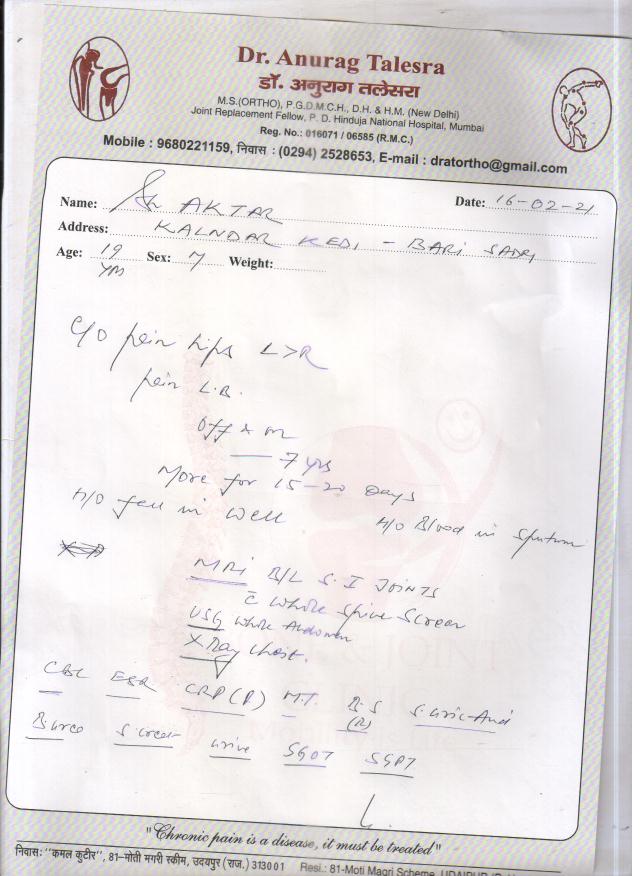 Dr. Anurag Talesra
डॉ. अनुराग तलेसरा
M.S.(ORTHO), P.G.D.M.C.H., D.H. & H.M. (New Delhi)
Joint Replacement Fellow, P. D. Hinduja National Hospital, Mumbai
Reg. No.: 016071 / 06585 (R.M.C.)
Mobile : 9680221159, निवास : (0294) 2528653, E-mail : dratortho@gmail.com
Name: AKTAR Date: 16-02-21
Address: KALNDAR KEDI - BARI SADRI
Age: 19 yrs Sex: Weight:
C/O pain hips L>R
pain L.B.
off & on
7 yrs
More for 15-20 Days
H/O fell in well H/O Blood in Sputum
MRI B/L S.I JOINTS
c̄ whole spine screen
USG whole Abdomen
X Ray chest.
CBC ESR CRP(R) M.T. B.S (R) S. Uric-Acid
B. urea S. creat urine SGOT SGPT
"Chronic pain is a disease, it must be treated"
निवासः "कमल कुटीर", 81-मोती मगरी स्कीम, उदयपुर (राज.) 313001 Resi.: 81-Moti Magri Scheme, UDAIPUR